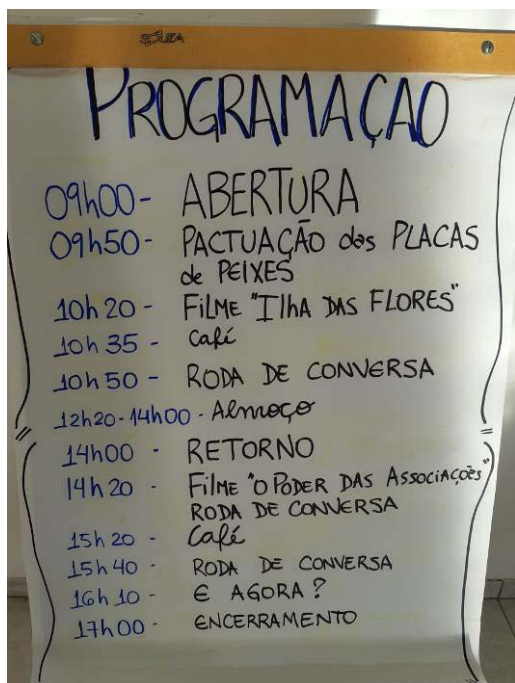 SOUZA
PROGRAMAÇAO
09h00 - ABERTURA
09h50 - PACTUAÇÃO das PLACAS
de PEIXES
10h20 - FILME "Ilha DAS FLORES"
10h35 - Café
10h50 - RODA DE CONVERSA
12h20-14h00 - Almoço
14h00 - RETORNO
14h20 - FILME "O PODER DAS ASSOCIAÇÕES"
RODA DE CONVERSA
15h20 - Café
15h40 - RODA DE CONVERSA
16h10 - E AGORA?
17h00 - ENCERRAMENTO